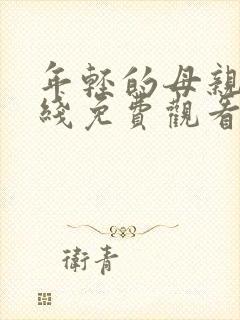 年輕的母親
綫免費觀看
衛青